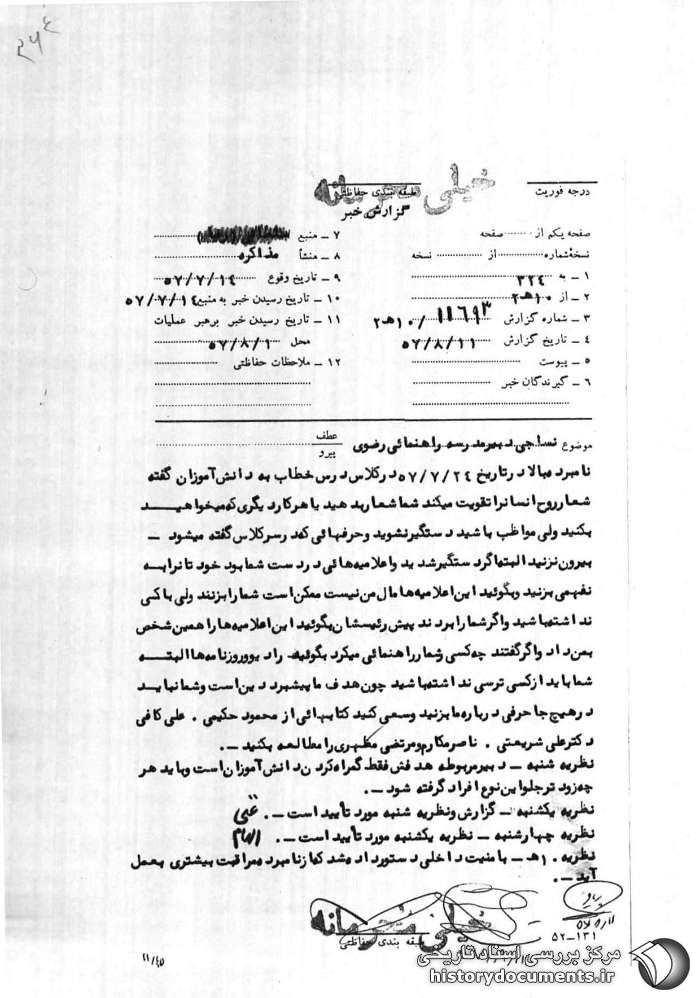 ۲۶۴
خیلی محرمانه
درجه فوریت
طبقه بندی حفاظتی
گزارش خبر
صفحه یکم از ........ صفحه
نسخهٔ شماره ........ از ........ نسخه
۱ ـ به ۳۲۴
۲ ـ از ۱۰هـ۲
۳ ـ شماره گزارش ۱۱۶۹۳ /۱۰هـ۲
۴ ـ تاریخ گزارش ۵۷/۸/۱۱
۵ ـ پیوست
۶ ـ گیرندگان خبر
۷ ـ منبع
۸ ـ منشأ مذاکره
۹ ـ تاریخ وقوع ۵۷/۷/۲۴
۱۰ ـ تاریخ رسیدن خبر به منبع ۵۷/۷/۲۴
۱۱ ـ تاریخ رسیدن خبر برهبر عملیات
محل ۵۷/۸/۱۰
۱۲ ـ ملاحظات حفاظتی
موضوع نساجی دبیر مدرسه راهنمائی رضوی
عطف
پیرو
نامبرده بالا در تاریخ ۵۷/۷/۲۴ در کلاس درس خطاب به دانش آموزان گفته
شعار روح انسان را تقویت میکند شما شعار بدهید یا هر کار دیگری که میخواهید
بکنید ولی مواظب باشید دستگیر نشوید و حرفهائی که در سر کلاس گفته میشود ـ
بیرون نزنید البته اگر دستگیر شدید و اعلامیه هائی در دست شما بود خودتان را به
نفهمی بزنید و بگوئید این اعلامیه ها مال من نیست ممکن است شما را بزنند ولی باکی
نداشته باشید و اگر شما را بردند پیش رئیسشان بگوئید این اعلامیه ها را همین شخص
بمن داد و اگر گفتند چه کسی شما را راهنمائی میکرد بگوئید رادیو و روزنامه ها البته
شما باید از کسی ترسی نداشته باشید چون هدف ما پیشبرد دین است و شما نباید
در هیچ جا حرفی درباره ما بزنید و سعی کنید کتابهائی از محمود حکیمی . علی کافی
دکتر علی شریعتی . ناصر مکارم و مرتضی مطهری را مطالعه بکنید ـ .
نظریه شنبه ـ دبیر مربوطه هدفش فقط گمراه کردن دانش آموزان است و باید هر
چه زودتر جلو این نوع افراد گرفته شود ـ .
نظریه یکشنبه ـ گزارش و نظریه شنبه مورد تأیید است ـ .
نظریه چهارشنبه ـ نظریه یکشنبه مورد تأیید است ـ .
نظریه ۱۰هـ ـ بامنیت داخلی دستور داده شد که از نامبرده مراقبت بیشتری بعمل
آید ـ .
خیلی محرمانه
طبقه بندی حفاظتی
۵۲ـ۱۳۱
۱۱/۴۵
مرکز بررسی اسناد تاریخی
historydocuments.ir